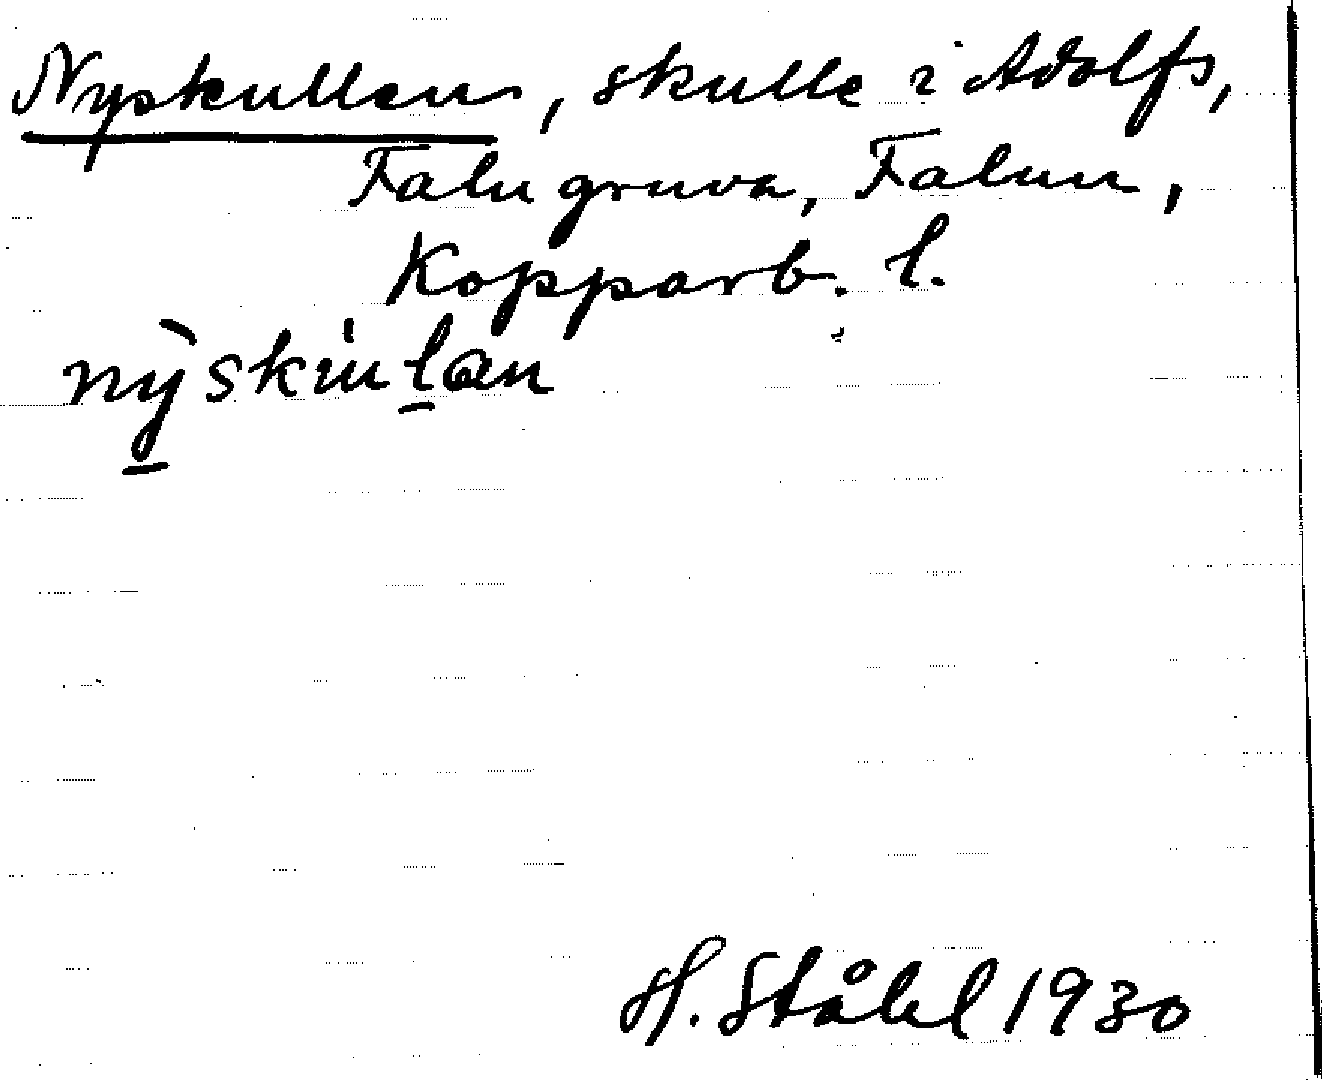 Nyskullen, skulle i Adolfs,
Falu gruva, Falun,
Kopparb. l.
H. Ståhl 1930